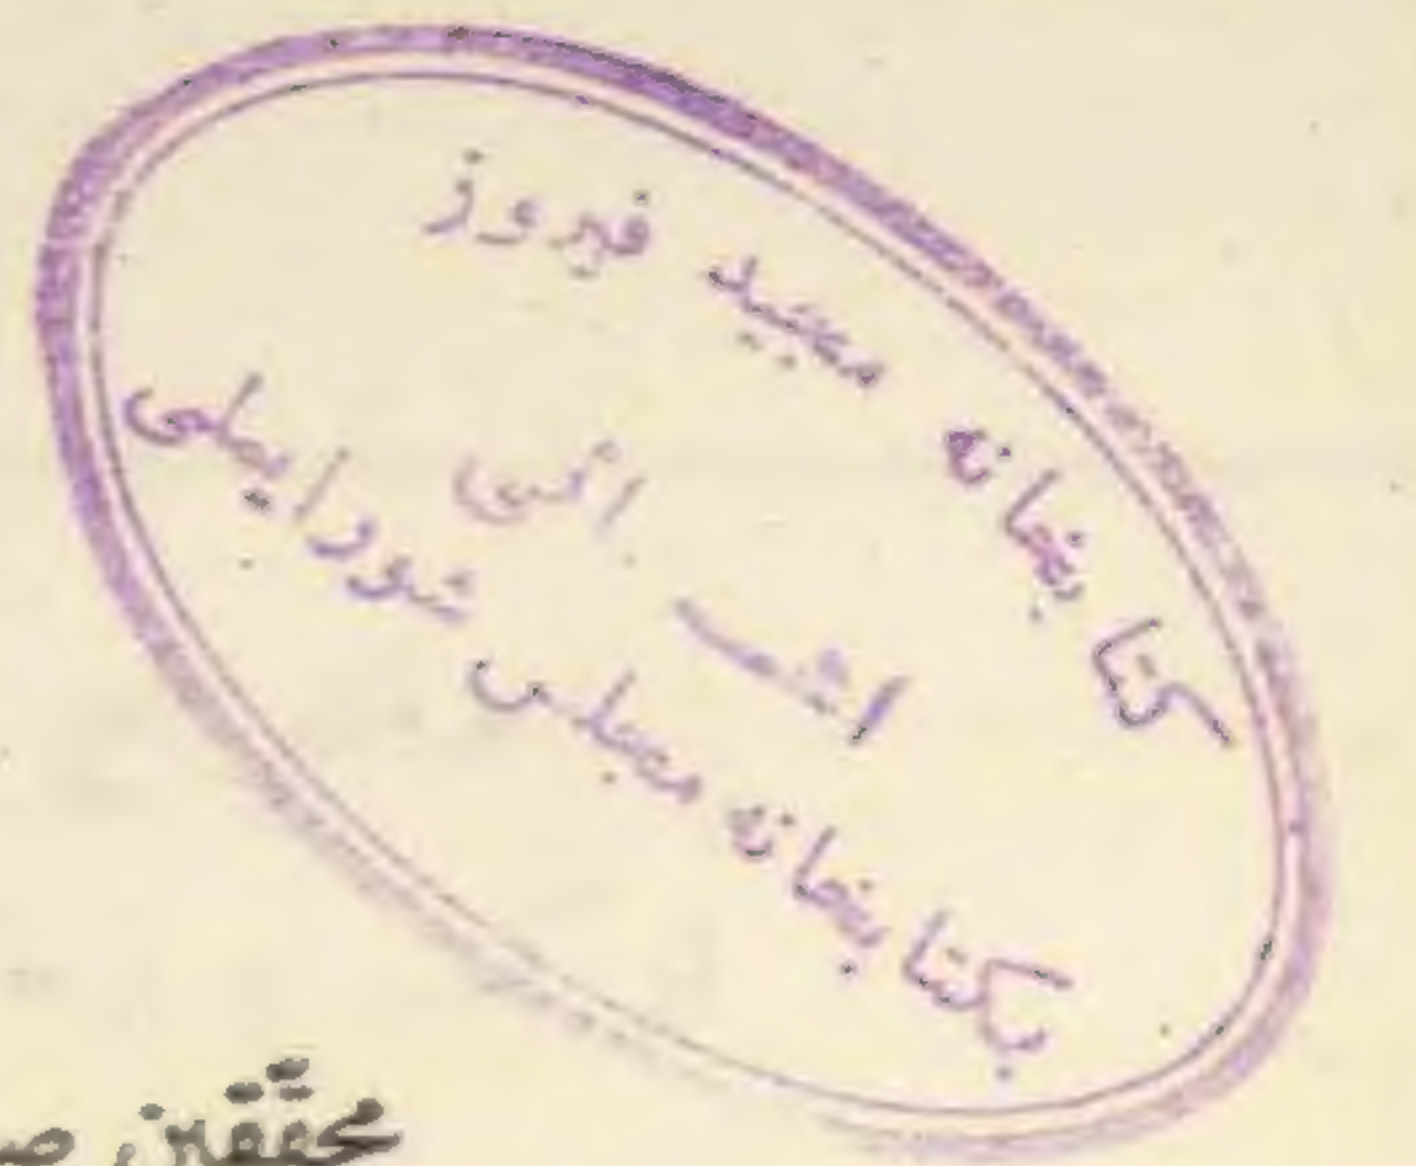 کتابخانه مجید فیروز
اهدائی
بکتابخانه مجلس شورایملی
محققین